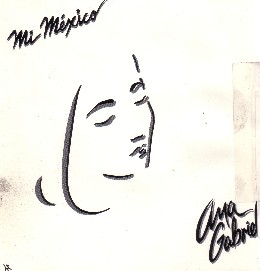 Mi México
Ana
Gabriel